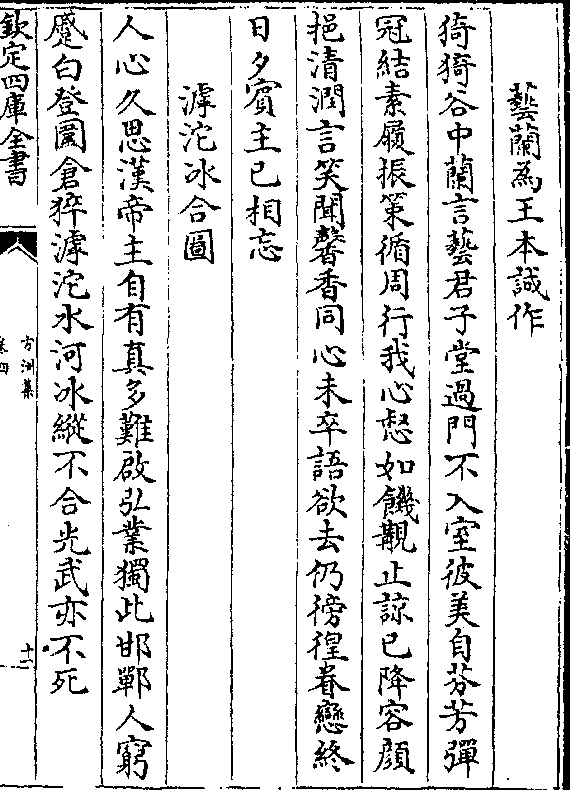 藝蘭為王本誠作
猗猗谷中蘭言藝君子堂過門不入室彼美自芬芳彈
冠結素履振策循周行我心惄如饑覯止諒已降容顔
挹清潤言笑聞馨香同心未卒語欲去仍徬徨眷戀終
日夕賓主已相忘
滹沱冰合圖
人心久思漢帝主自有真多難啟弘業獨此邯鄲人窮
蹙白登圍倉猝滹沱水河冰縱不合光武亦不死
欽定四庫全書
方洲集
卷四
十一